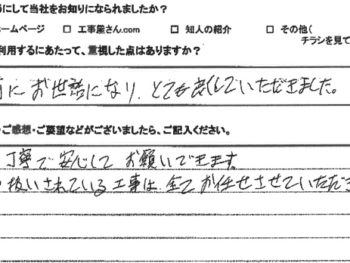 うにして当社をお知りになられましたか？
ームページ □ 工事屋さん.com □ 知人の紹介 □ その他（
チラシを見て
利用するにあたって、重視した点はありますか？
にお世話になり、とても良くしていただきました。
・ご感想・ご要望などがございましたら、ご記入ください。
丁寧で安心してお願いできます
扱いされている工事は全てお任せさせていただき